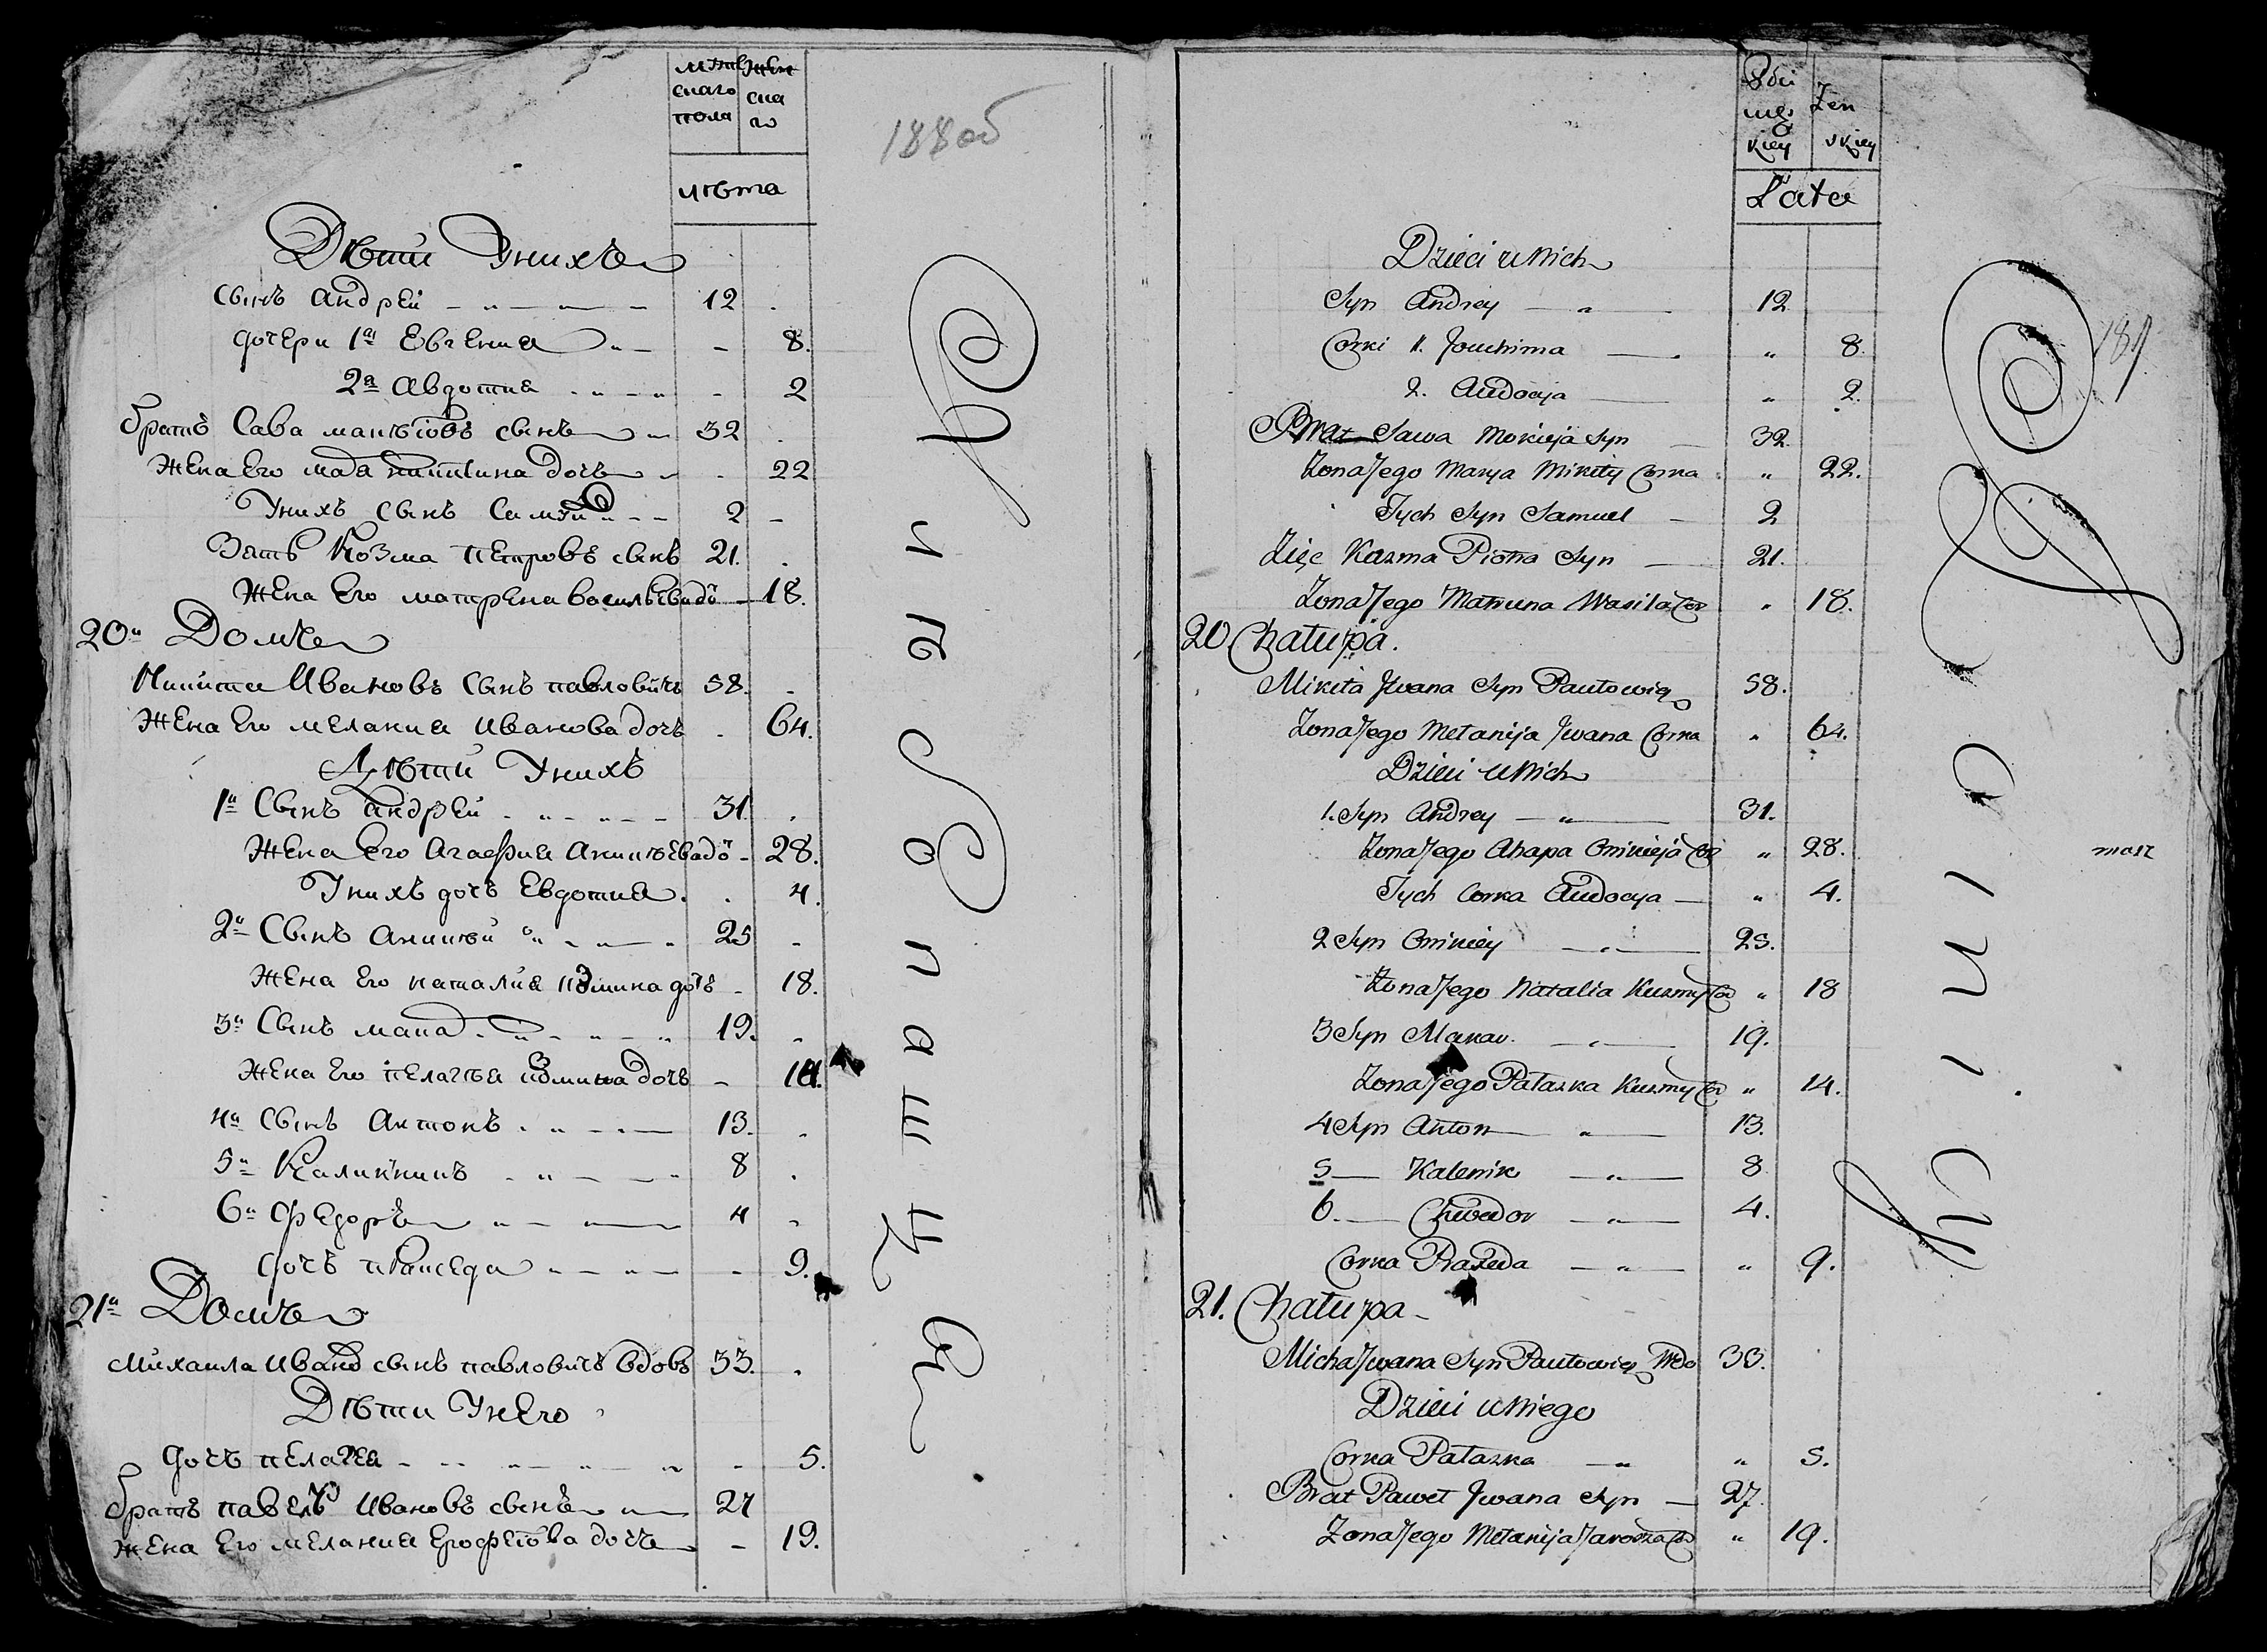 мужескаго пола
женскаго
лѣта
188об
Дѣти Унихъ
Сынъ Андрей 12
дочери 1я Евгения 8.
2я Авдотия 2
братъ Сава сынъ 32
Жена Его дочь 22
Унихъ Сынъ 2
Зять Козма Петровъ сынъ 21.
Жена Его матрена васильева до 18.
20й Домъ
Никита Ивановъ Сынъ павловичъ 58.
Жена Его мелания Иванова дочь 64.
Дѣти Унихъ
1й Сынъ Андрей 31.
Жена Его Агафия до 28.
Унихъ дочь Евдотия 4.
2й Сынъ 25
Жена Его наталия дочь 18.
3й Сынъ 19.
Жена Его пелагея дочь
4й Сынъ Антонъ 13.
5й Калиникъ 8
6й Федоръ 4
дочь 9.
21й Домъ
Михаила сынъ павловичъ вдовъ 33.
Дѣти Унего
дочь пелагея 5.
братъ павелъ Ивановъ сынъ 27
Жена Его мелания дочь 19.
Płci męzkiey
Zenskiey
Lata
189
Dzieci u Nich
Syn Andrey 12
Corki 1. Jouchima „ 8.
2. Audocya „ 2.
Brat Sawa Mokieja Syn 32
Zona Jego Marya Mikity Corka „ 22.
Tych Syn Samuel 2
Zięc Kuzma Piotra Syn 21.
Zona Jego Matruna Wasila Cor „ 18.
20 Chałupa.
Mikita Jwana Syn Pawłowicz 58.
Zona Jego Melanija Jwana Corka „ 64.
Dzieci u Nich
1. Syn Andrey 31.
Zona Jego Ahapa Onikieja Cor „ 28.
Tych Corka Audocya „ 4.
2 Syn Onikiey 25.
Zona Jego Natalia Kuzmy Cor „ 18
3 Syn Makar 19.
Zona Jego Pałazka Kuzmy Cor „ 14.
4 Syn Anton 13.
5 Kalenik 8
6. Chwedor 4.
Corka Praxeda „ 9.
21. Chałupa
Micha Jwana Syn Pawłowicz Wdo 33.
Dzieci u Niego
Corka Pałazka „ 5.
Brat Paweł Jwana Syn 27.
Zona Jego Melanija Cor „ 19.